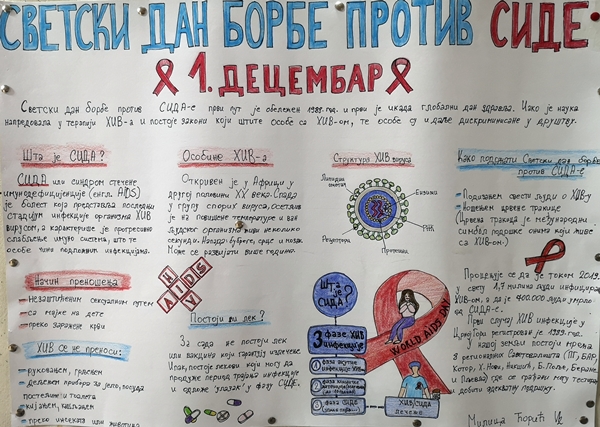 СВЕТСКИ ДАН БОРБЕ ПРОТИВ СИДЕ
1. ДЕЦЕМБАР
Светски дан борбе против СИДА-е први пут је обележен 1988. год. и први је икада глобални дан здравља. Иако је наука
напредовала у терапији ХИВ-а и постоје закони који штите особе са ХИВ-ом, те особе су и даље дискриминисане у друштву.
Шта је СИДА?
СИДА или синдром стечене
имунодефицијенције (енгл. AIDS)
је болест која представља последњи
стадијум инфекције организма ХИВ
вирусом, а карактерише је прогресивно
слабљење имуно система, што те
особе чини подложним инфекцијама.
Начин преношења
-незаштићеним сексуалним путем
-са мајке на дете
-преко заражене крви
ХИВ се не преноси:
-руковањем, грљењем
-дељењем прибора за јело, посуда
постељине и тоалета
-кијањем, кашљањем
-преко инсеката или животиња
Особине ХИВ-а
Откривен је у Африци у
другој половини XX века. Спада
у групу спорих вируса, осетљив
је на повишене температуре и ван
људског организма живи неколико
секунди. Напада: бубреге, срце и мозак.
Може се развијати више година.
HIV
AIDS
Постоји ли лек?
За сада не постоји лек
или вакцина који гарантују излечење
Ипак, постоје лекови који могу да
продуже период трајања инфекције
и одложе "улазак" у фазу СИДЕ.
Структура ХИВ вируса
Липидна
Ензими
РНК
Рецептори
Протеини
ШТА
ЈЕ
СИДА?
3 фазе ХИВ
инфекције
1 фаза акутне
инфекције ХИВ-ом
2
3 фаза СИДЕ
WORLD AIDS DAY
ХИВ/СИДА
лечење
Како подржати Светски дан борбе
против СИДА-е
-Подизањем свести људи о ХИВ-у
-Ношењем црвене траке
(Црвена трака је међународни
симбол подршке онима који живе
са ХИВ-ом.)
Процењује се да је током 2019.
у свету 1,7 милиона људи инфицирано
ХИВ-ом, а да је 400.000 људи умрло
од СИДА-е.
Први случај ХИВ инфекције у
Црној Гори регистрован је 1989. год.
У нашој земљи постоји мрежа
8 регионалних Савјетовалишта (ПГ, БАР,
Котор, Х. Нови, Никшић, Б. Поље, Беране
и Пљевља) где се грађани могу тестирати
и добити адекватну подршку.
Милица Ђорић